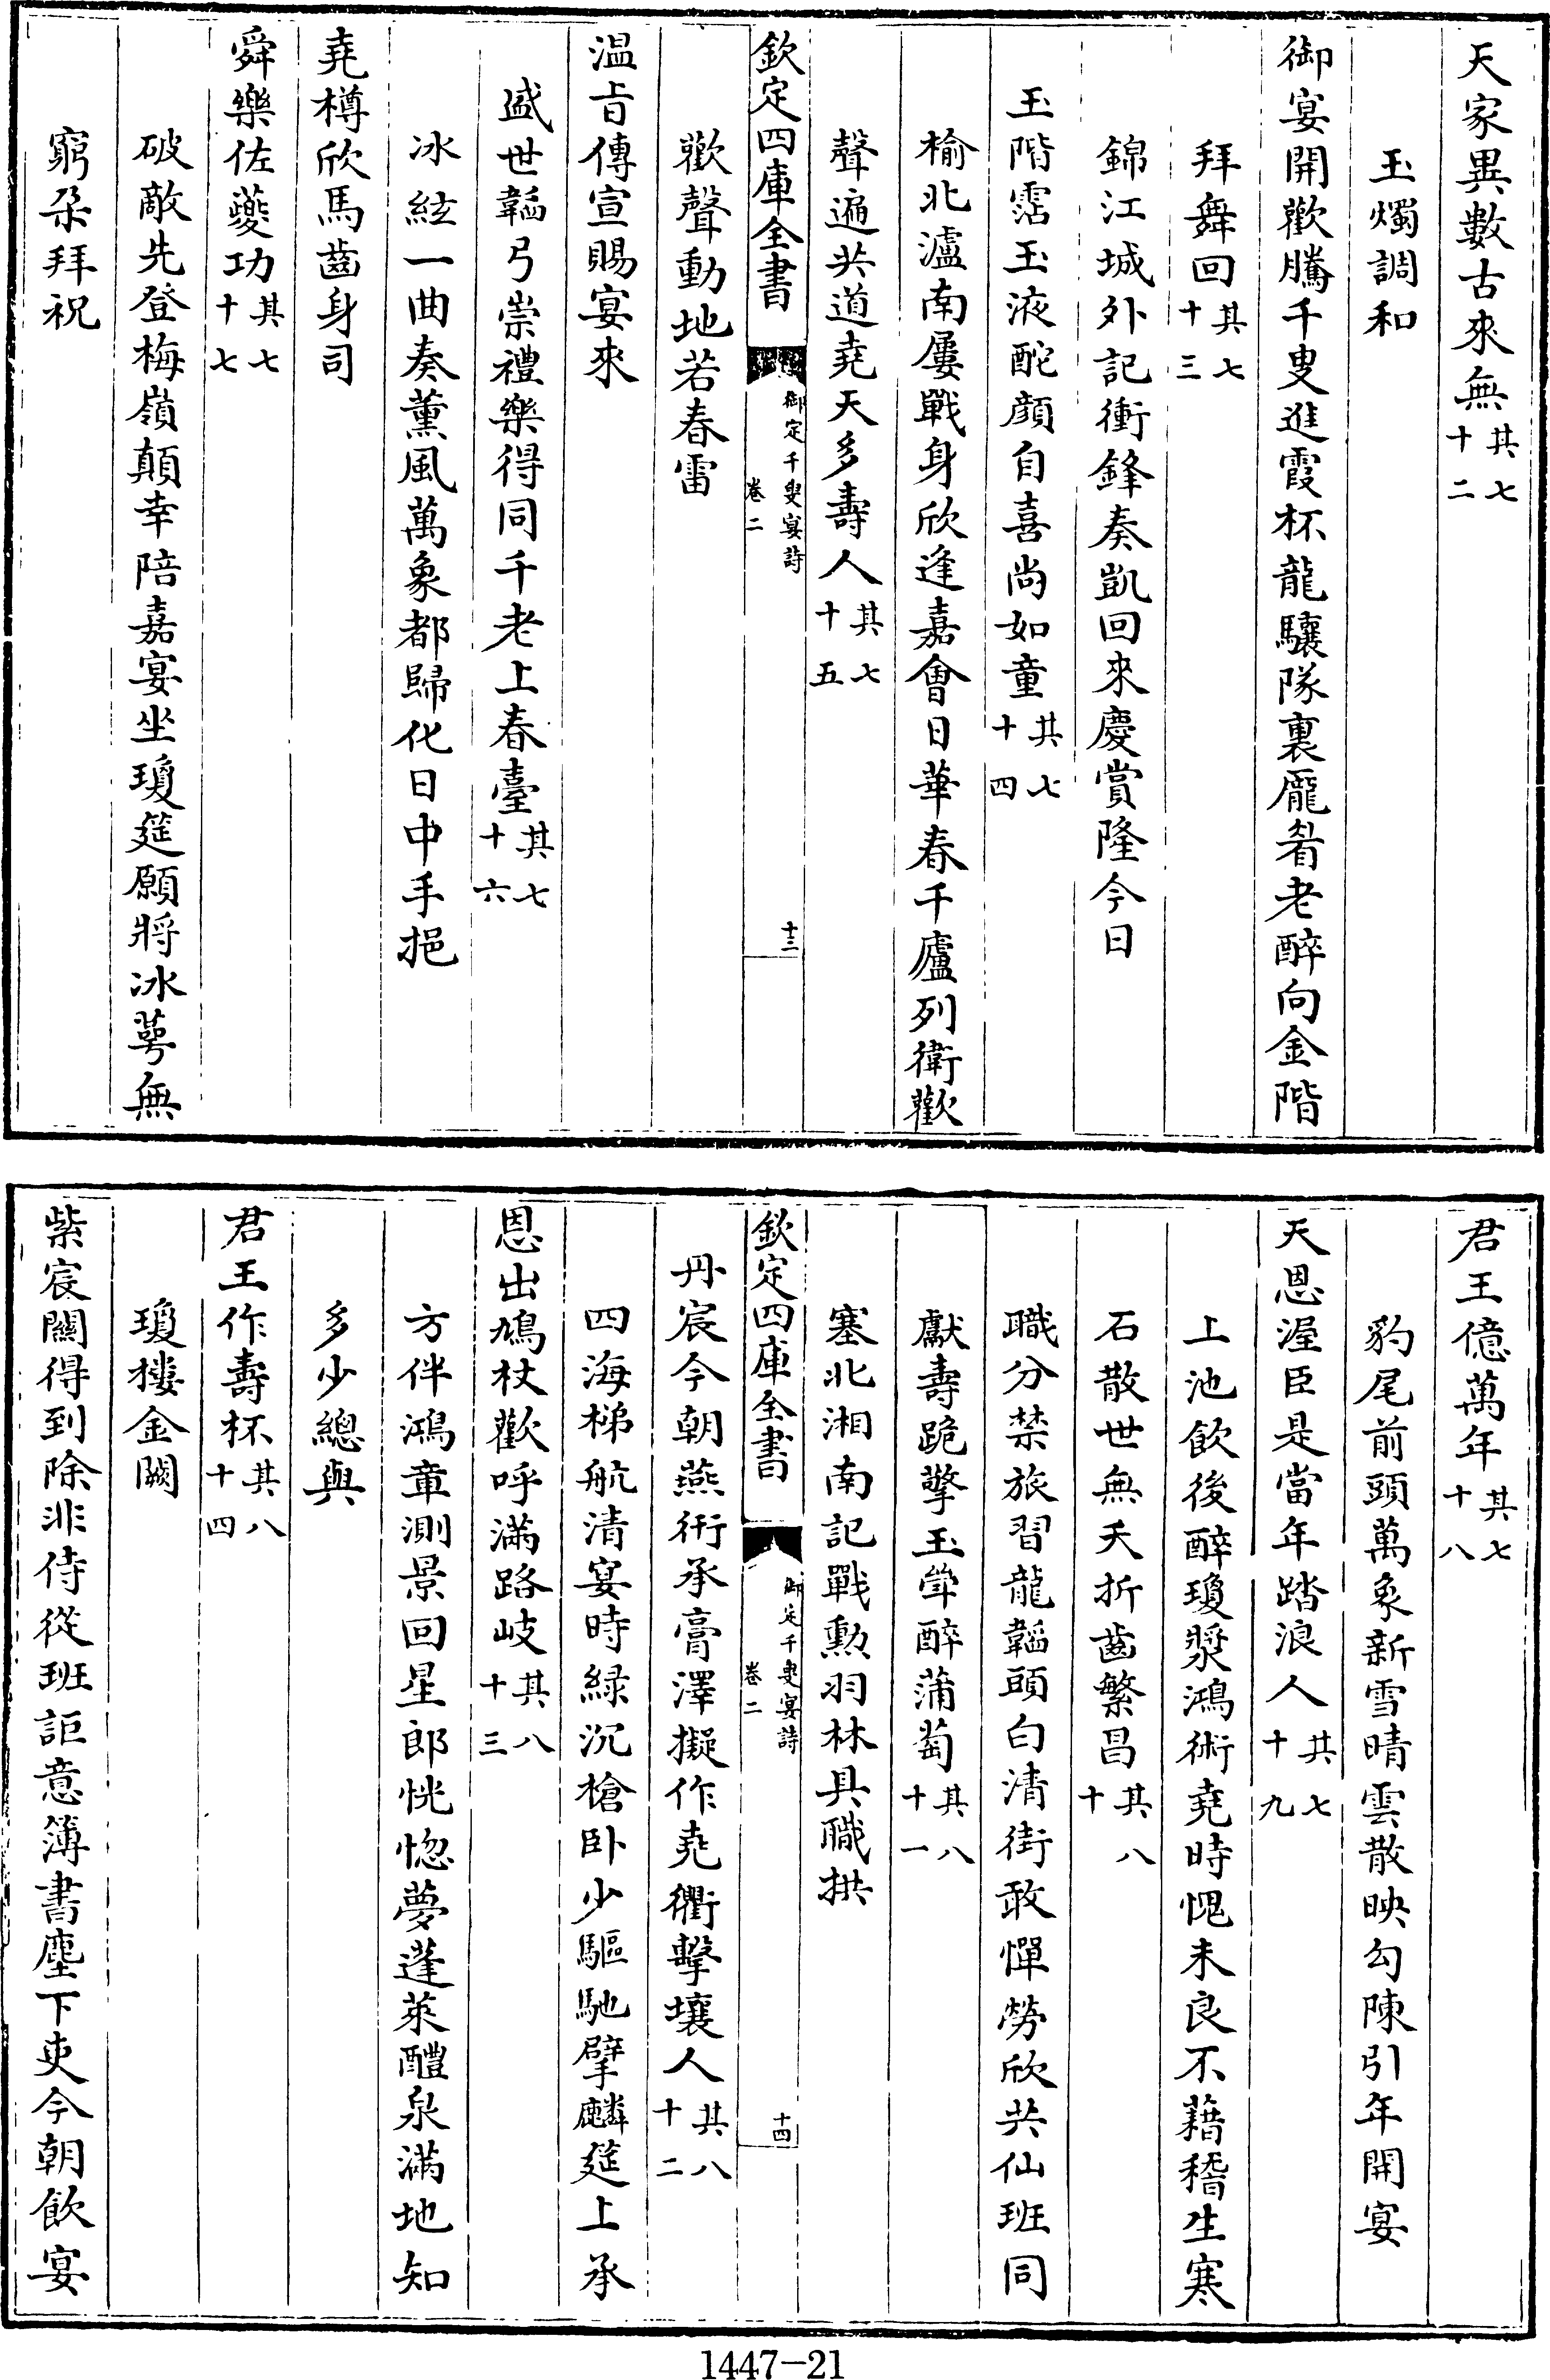 天家異數古來無其七十二
玉燭調和
御宴開歡騰千叟進霞杯龍驤隊裏龎眉老醉向金階
拜舞回其七十三
錦江城外記衝鋒奏凱回來慶賞隆今日
玉階霑玉液酡顔自喜尚如童其七十四
榆北瀘南屢戰身欣逢嘉會日華春千廬列衛歡
聲遍共道堯天多壽人其七十五
欽定四庫全書 御定千叟宴詩 卷二 十三
歡聲動地若春雷
温旨傳宣賜宴來
盛世韜弓崇禮樂得同千老上春臺其七十六
冰絃一曲奏薰風萬象都歸化日中手挹
堯樽欣馬齒身司
舜樂佐夔功其七十七
破敵先登梅嶺顛幸陪嘉宴坐瓊筵願將冰萼無
窮朶拜祝
君王億萬年其七十八
豹尾前頭萬象新雪晴雲散映勾陳引年開宴
天恩渥臣是當年踏浪人其七十九
上池飲後醉瓊漿鴻術堯時愧未良不藉稽生寒
石散世無夭折齒繁昌其八十
職分禁旅習龍韜頭白清街敢憚勞欣共仙班同
獻壽跪擎玉斝醉蒲萄其八十一
塞北湘南記戰勲羽林具職拱
欽定四庫全書 御定千叟宴詩 卷二 十四
丹宸今朝燕衎承膏澤擬作堯衢擊壤人其八十二
四海梯航清宴時緑沉槍卧少驅馳擘麟筵上承
恩出鳩杖歡呼滿路岐其八十三
方伴鴻章測景回星郎恍惚夢蓬萊醴泉滿地知
多少總與
君王作壽杯其八十四
瓊樓金闕
紫宸關得到除非侍從班詎意簿書塵下吏今朝飲宴
1447-21